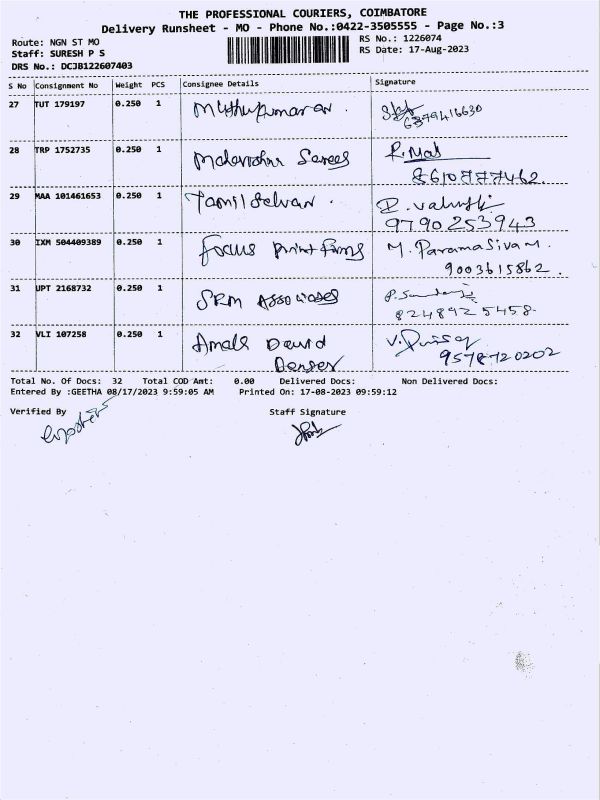 THE PROFESSIONAL COURIERS, COIMBATORE
Delivery Runsheet - MO - Phone No.:0422-3505555 - Page No.:3
Route: NGN ST MO
RS No.: 1226074
Staff: SURESH P S
RS Date: 17-Aug-2023
DRS No.: DCJB122607403
S No Consignment No Weight PCS Consignee Details Signature
27 TUT 179197 0.250 1 Muthukumaran.
6379416630
28 TRP 1752735 0.250 1 Sarees
8610777462
29 MAA 101461653 0.250 1 Tamil Selvan.
9790253943
30 IXM 504409389 0.250 1 Focus Print Forms M. Paramasivam.
9003615862.
31 UPT 2168732 0.250 1 SRM Associates
8248925458-
32 VLI 107258 0.250 1 Amala David
9578720202
Total No. Of Docs: 32 Total COD Amt: 0.00 Delivered Docs: Non Delivered Docs:
Entered By :GEETHA 08/17/2023 9:59:05 AM Printed On: 17-08-2023 09:59:12
Verified By Staff Signature